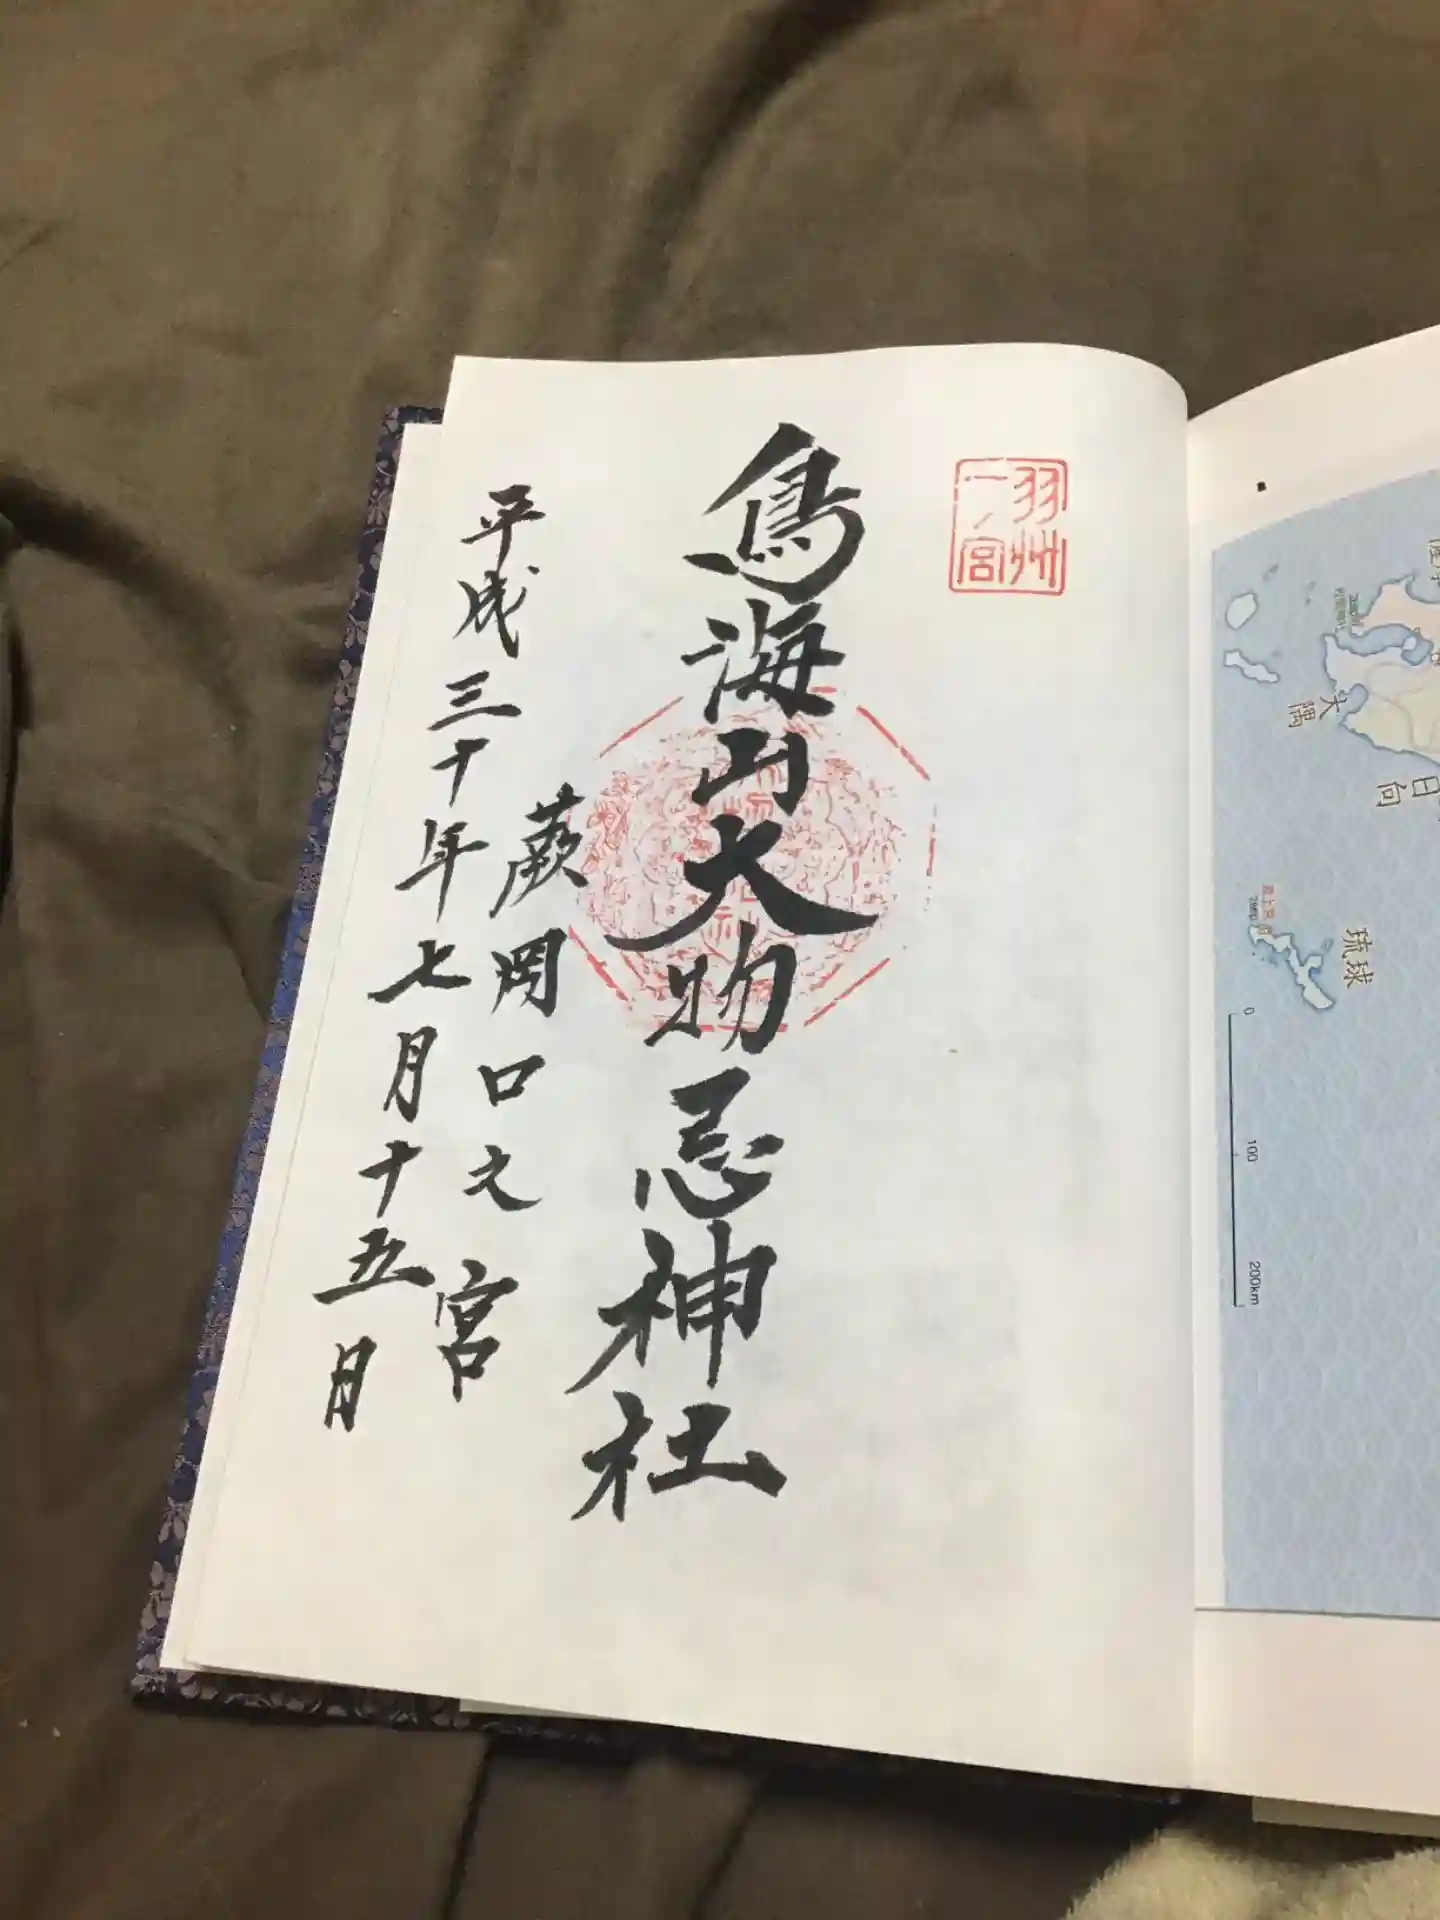 羽州
一ノ宮
鳥海山大物忌神社
蕨岡口之宮
平成三十年七月十五日
大隅
日向
琉球
0
100
200km